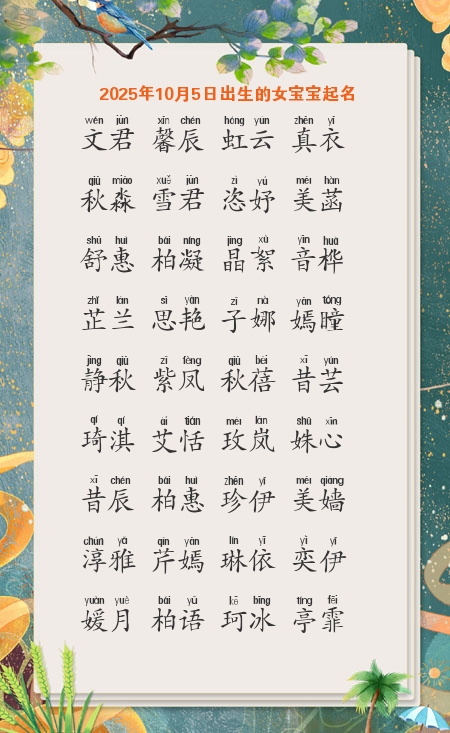 2025年10月5日出生的女宝宝起名
wén jūn xīn chén hóng yún zhēn yī
文君 馨辰 虹云 真衣
qiū miǎo xuě jūn zì yú měi hàn
秋淼 雪君 恣妤 美菡
shū huì bǎi níng jīng xù yīn huà
舒惠 柏凝 晶絮 音桦
zhǐ lán sī yàn zǐ nà yān tóng
芷兰 思艳 子娜 嫣瞳
jìng qiū zǐ fèng qiū bèi xī yún
静秋 紫凤 秋蓓 昔芸
qí qí ài tián méi lán shū xīn
琦淇 艾恬 玫岚 姝心
xī chén bǎi huì zhēn yī měi qiáng
昔辰 柏惠 珍伊 美嫱
chún yǎ qín yān lín yī yì yī
淳雅 芹嫣 琳依 奕伊
yuàn yuè bǎi yǔ kē bīng tíng fēi
媛月 柏语 珂冰 亭霏